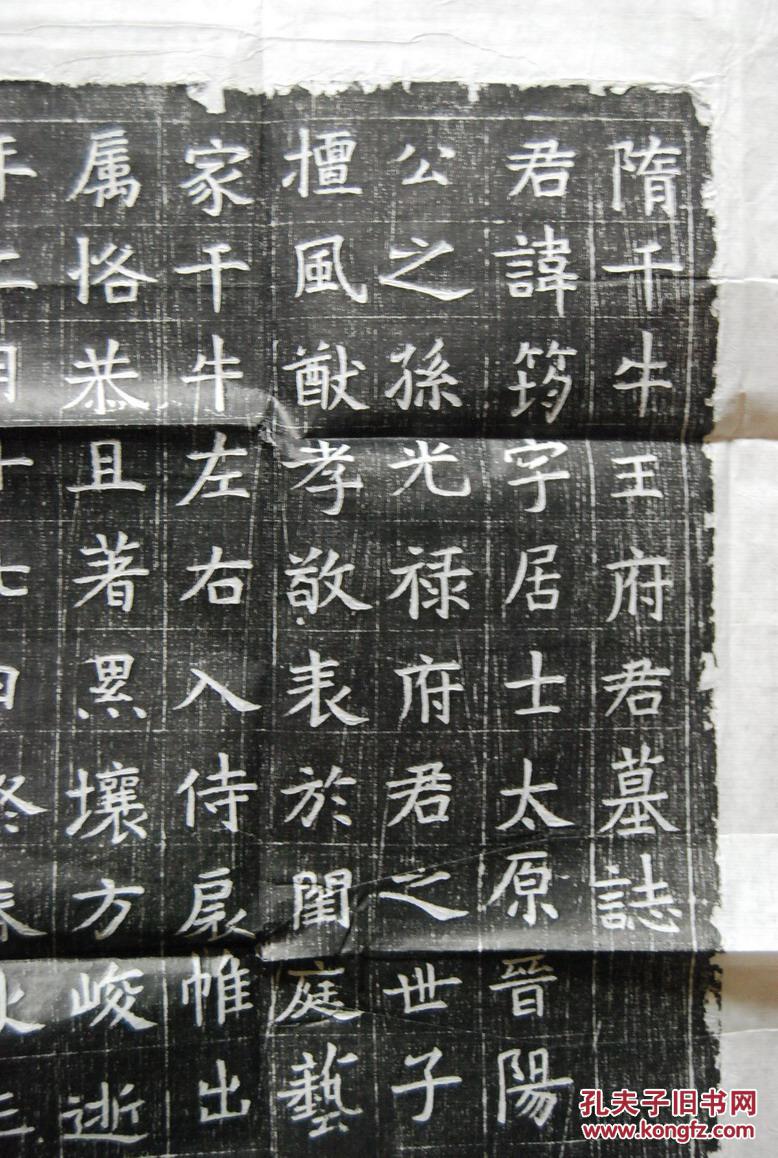 隋千牛王府君墓誌
君諱筠字居士太原晉陽
公之孫光禄府君之世子
擅風猷孝敬表於閨庭藝
家千牛左右入侍扆帷出
属恪恭且著累壤方峻逝
年二月十七日終春秋三
孔夫子旧书网
www.kongfz.com